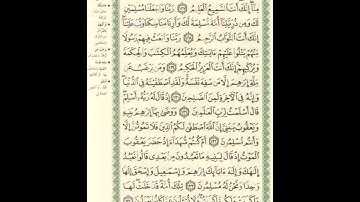 مِنَّآ إِنَّكَ أَنتَ ٱلسَّمِيعُ ٱلْعَلِيمُ ١٢٧ رَبَّنَا وَٱجْعَلْنَا مُسْلِمَيْنِ
لَكَ وَمِن ذُرِّيَّتِنَآ أُمَّةً مُّسْلِمَةً لَّكَ وَأَرِنَا مَنَاسِكَنَا وَتُبْ عَلَيْنَآ
إِنَّكَ أَنتَ ٱلتَّوَّابُ ٱلرَّحِيمُ ١٢٨ رَبَّنَا وَٱبْعَثْ فِيهِمْ رَسُولًا
مِّنْهُمْ يَتْلُوا۟ عَلَيْهِمْ ءَايَـٰتِكَ وَيُعَلِّمُهُمُ ٱلْكِتَـٰبَ وَٱلْحِكْمَةَ
وَيُزَكِّيهِمْ إِنَّكَ أَنتَ ٱلْعَزِيزُ ٱلْحَكِيمُ ١٢٩ وَمَن يَرْغَبُ عَن
مِّلَّةِ إِبْرَٰهِـۧمَ إِلَّا مَن سَفِهَ نَفْسَهُۥ وَلَقَدِ ٱصْطَفَيْنَـٰهُ فِى ٱلدُّنْيَا
وَإِنَّهُۥ فِى ٱلْـَٔاخِرَةِ لَمِنَ ٱلصَّـٰلِحِينَ ١٣٠ إِذْ قَالَ لَهُۥ رَبُّهُۥٓ أَسْلِمْ
قَالَ أَسْلَمْتُ لِرَبِّ ٱلْعَـٰلَمِينَ ١٣١ وَوَصَّىٰ بِهَآ إِبْرَٰهِـۧمُ بَنِيهِ
وَيَعْقُوبُ يَـٰبَنِىَّ إِنَّ ٱللَّهَ ٱصْطَفَىٰ لَكُمُ ٱلدِّينَ فَلَا تَمُوتُنَّ إِلَّا
وَأَنتُم مُّسْلِمُونَ ١٣٢ أَمْ كُنتُمْ شُهَدَآءَ إِذْ حَضَرَ يَعْقُوبَ
ٱلْمَوْتُ إِذْ قَالَ لِبَنِيهِ مَا تَعْبُدُونَ مِنۢ بَعْدِى قَالُوا۟ نَعْبُدُ
إِلَـٰهَكَ وَإِلَـٰهَ ءَابَآئِكَ إِبْرَٰهِـۧمَ وَإِسْمَـٰعِيلَ وَإِسْحَـٰقَ إِلَـٰهًا
وَٰحِدًا وَنَحْنُ لَهُۥ مُسْلِمُونَ ١٣٣ تِلْكَ أُمَّةٌ قَدْ خَلَتْ لَهَا